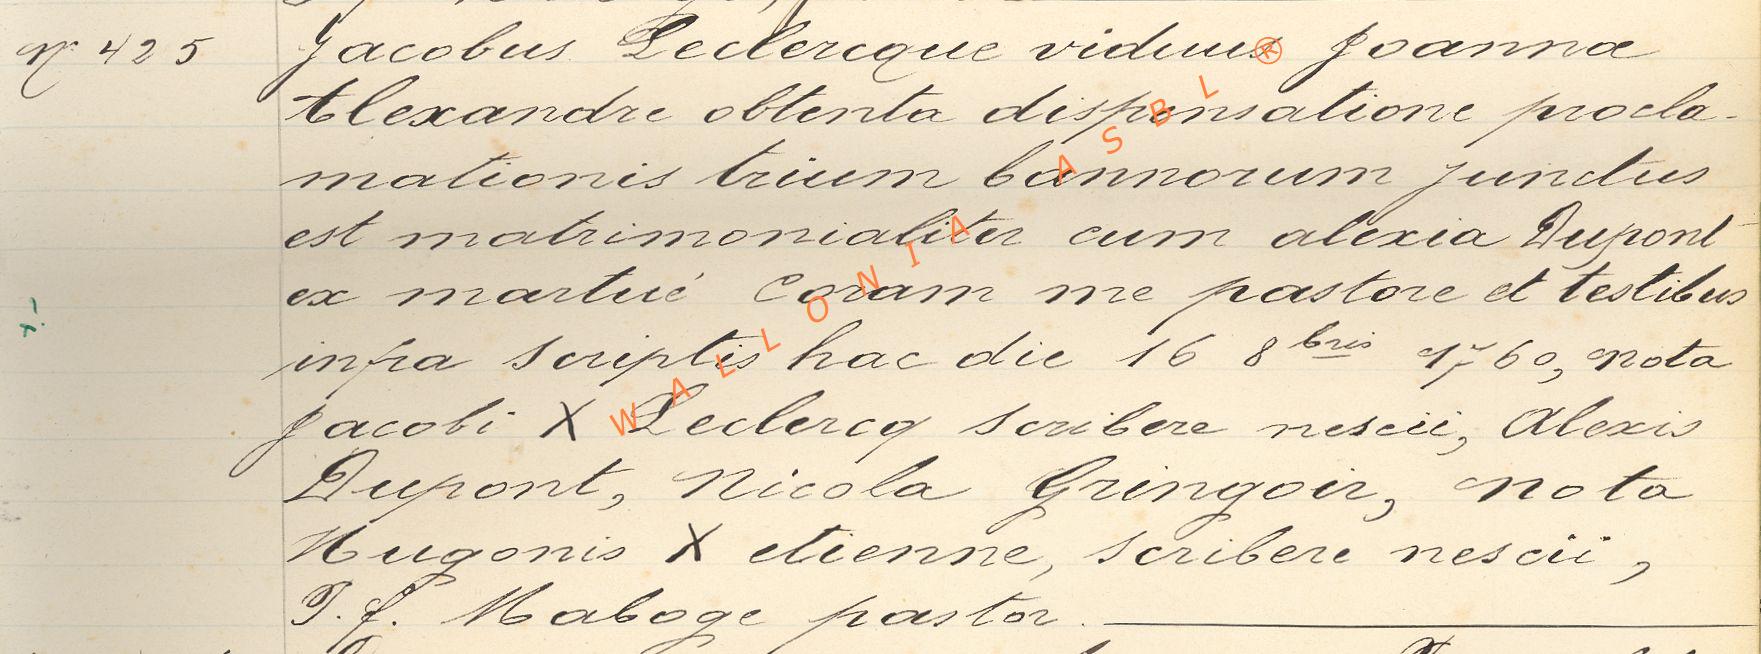 N° 425 Jacobus Leclercque viduus Joanna
Alexandre obtenta dispensatione procla-
mationis trium bannorum junctus
est matrimonialiter cum alexia Dupont
ex martué Coram me pastore et testibus
infra scriptis hac die 16 8bris 1760, nota
Jacobi X Leclercq scribere nescii, Alexis
Dupont, Nicola Gringoir, nota
Hugonis X etienne, scribere nescii,
J. f. Maboge pastor.
WALLONIA ASBL ®